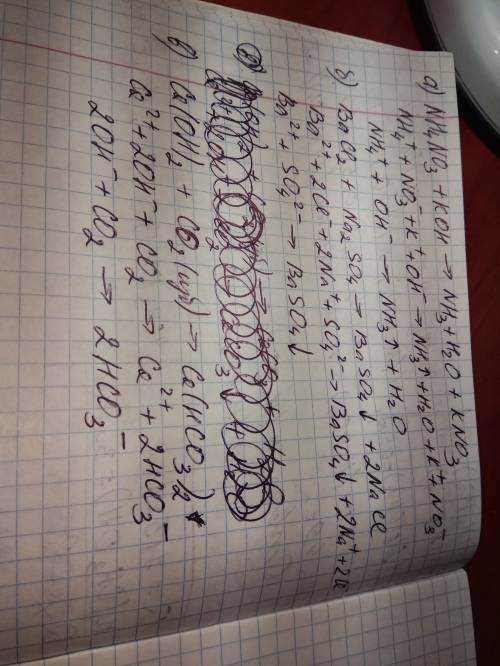 а) NH4NO3 + KOH → NH3 + H2O + KNO3
NH4⁺ + NO3⁻ + K⁺ + OH⁻ → NH3↑ + H2O + K⁺ + NO3⁻
NH4⁺ + OH⁻ → NH3↑ + H2O
б) BaCl2 + Na2SO4 → BaSO4↓ + 2NaCl
Ba²⁺ + 2Cl⁻ + 2Na⁺ + SO4²⁻ → BaSO4↓ + 2Na⁺ + 2Cl
Ba²⁺ + SO4²⁻ → BaSO4↓
в) Ca(OH)2 + CO2 (изб) → Ca(HCO3)2
Ca²⁺ + 2OH⁻ + CO2 → Ca²⁺ + 2HCO3⁻
2OH⁻ + CO2 → 2HCO3⁻